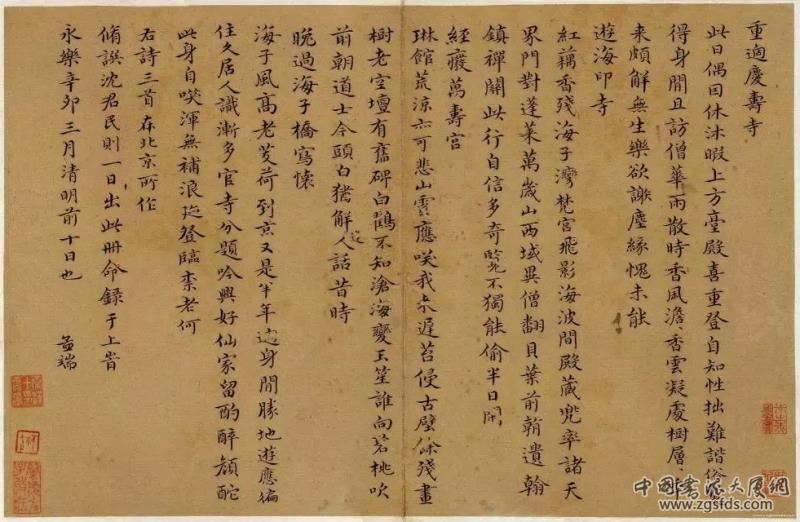 重過慶壽寺
此日偶因休沐暇上方臺殿喜重登自知性拙難諧俗
得身閒且訪僧華雨散時香風澹澹香雲凝處樹層
来頗解無生樂欲謝塵緣愧未能
遊海印寺
紅藕香殘海子灣梵宫飛影海波間殿藏兜率諸天
界門對蓬萊萬歲山西域異僧翻貝葉前朝遺翰
鎮禪關此行自信多奇覽不獨能偷半日閒
經廢萬壽宫
琳館荒涼亦可悲山靈應咲我来遲苔侵古壁餘殘畫
樹老空壇有舊碑白鶴不知滄海變玉笙誰向碧桃吹
前朝道士今頭白猶解逢人話昔時
晚過海子橋寫懷
海子風高老芰荷到京又是半年過身閒勝地遊應徧
住久居人識漸多官寺分題吟興好仙家留酌醉顔酡
此身自咲渾無補浪跡登臨柰老何
右詩三首在北京所作
脩譔沈君民則一日出此冊命錄于上旹
永樂辛卯三月清明前十日也 孟端
中国书法大厦网
www.zgsfds.com